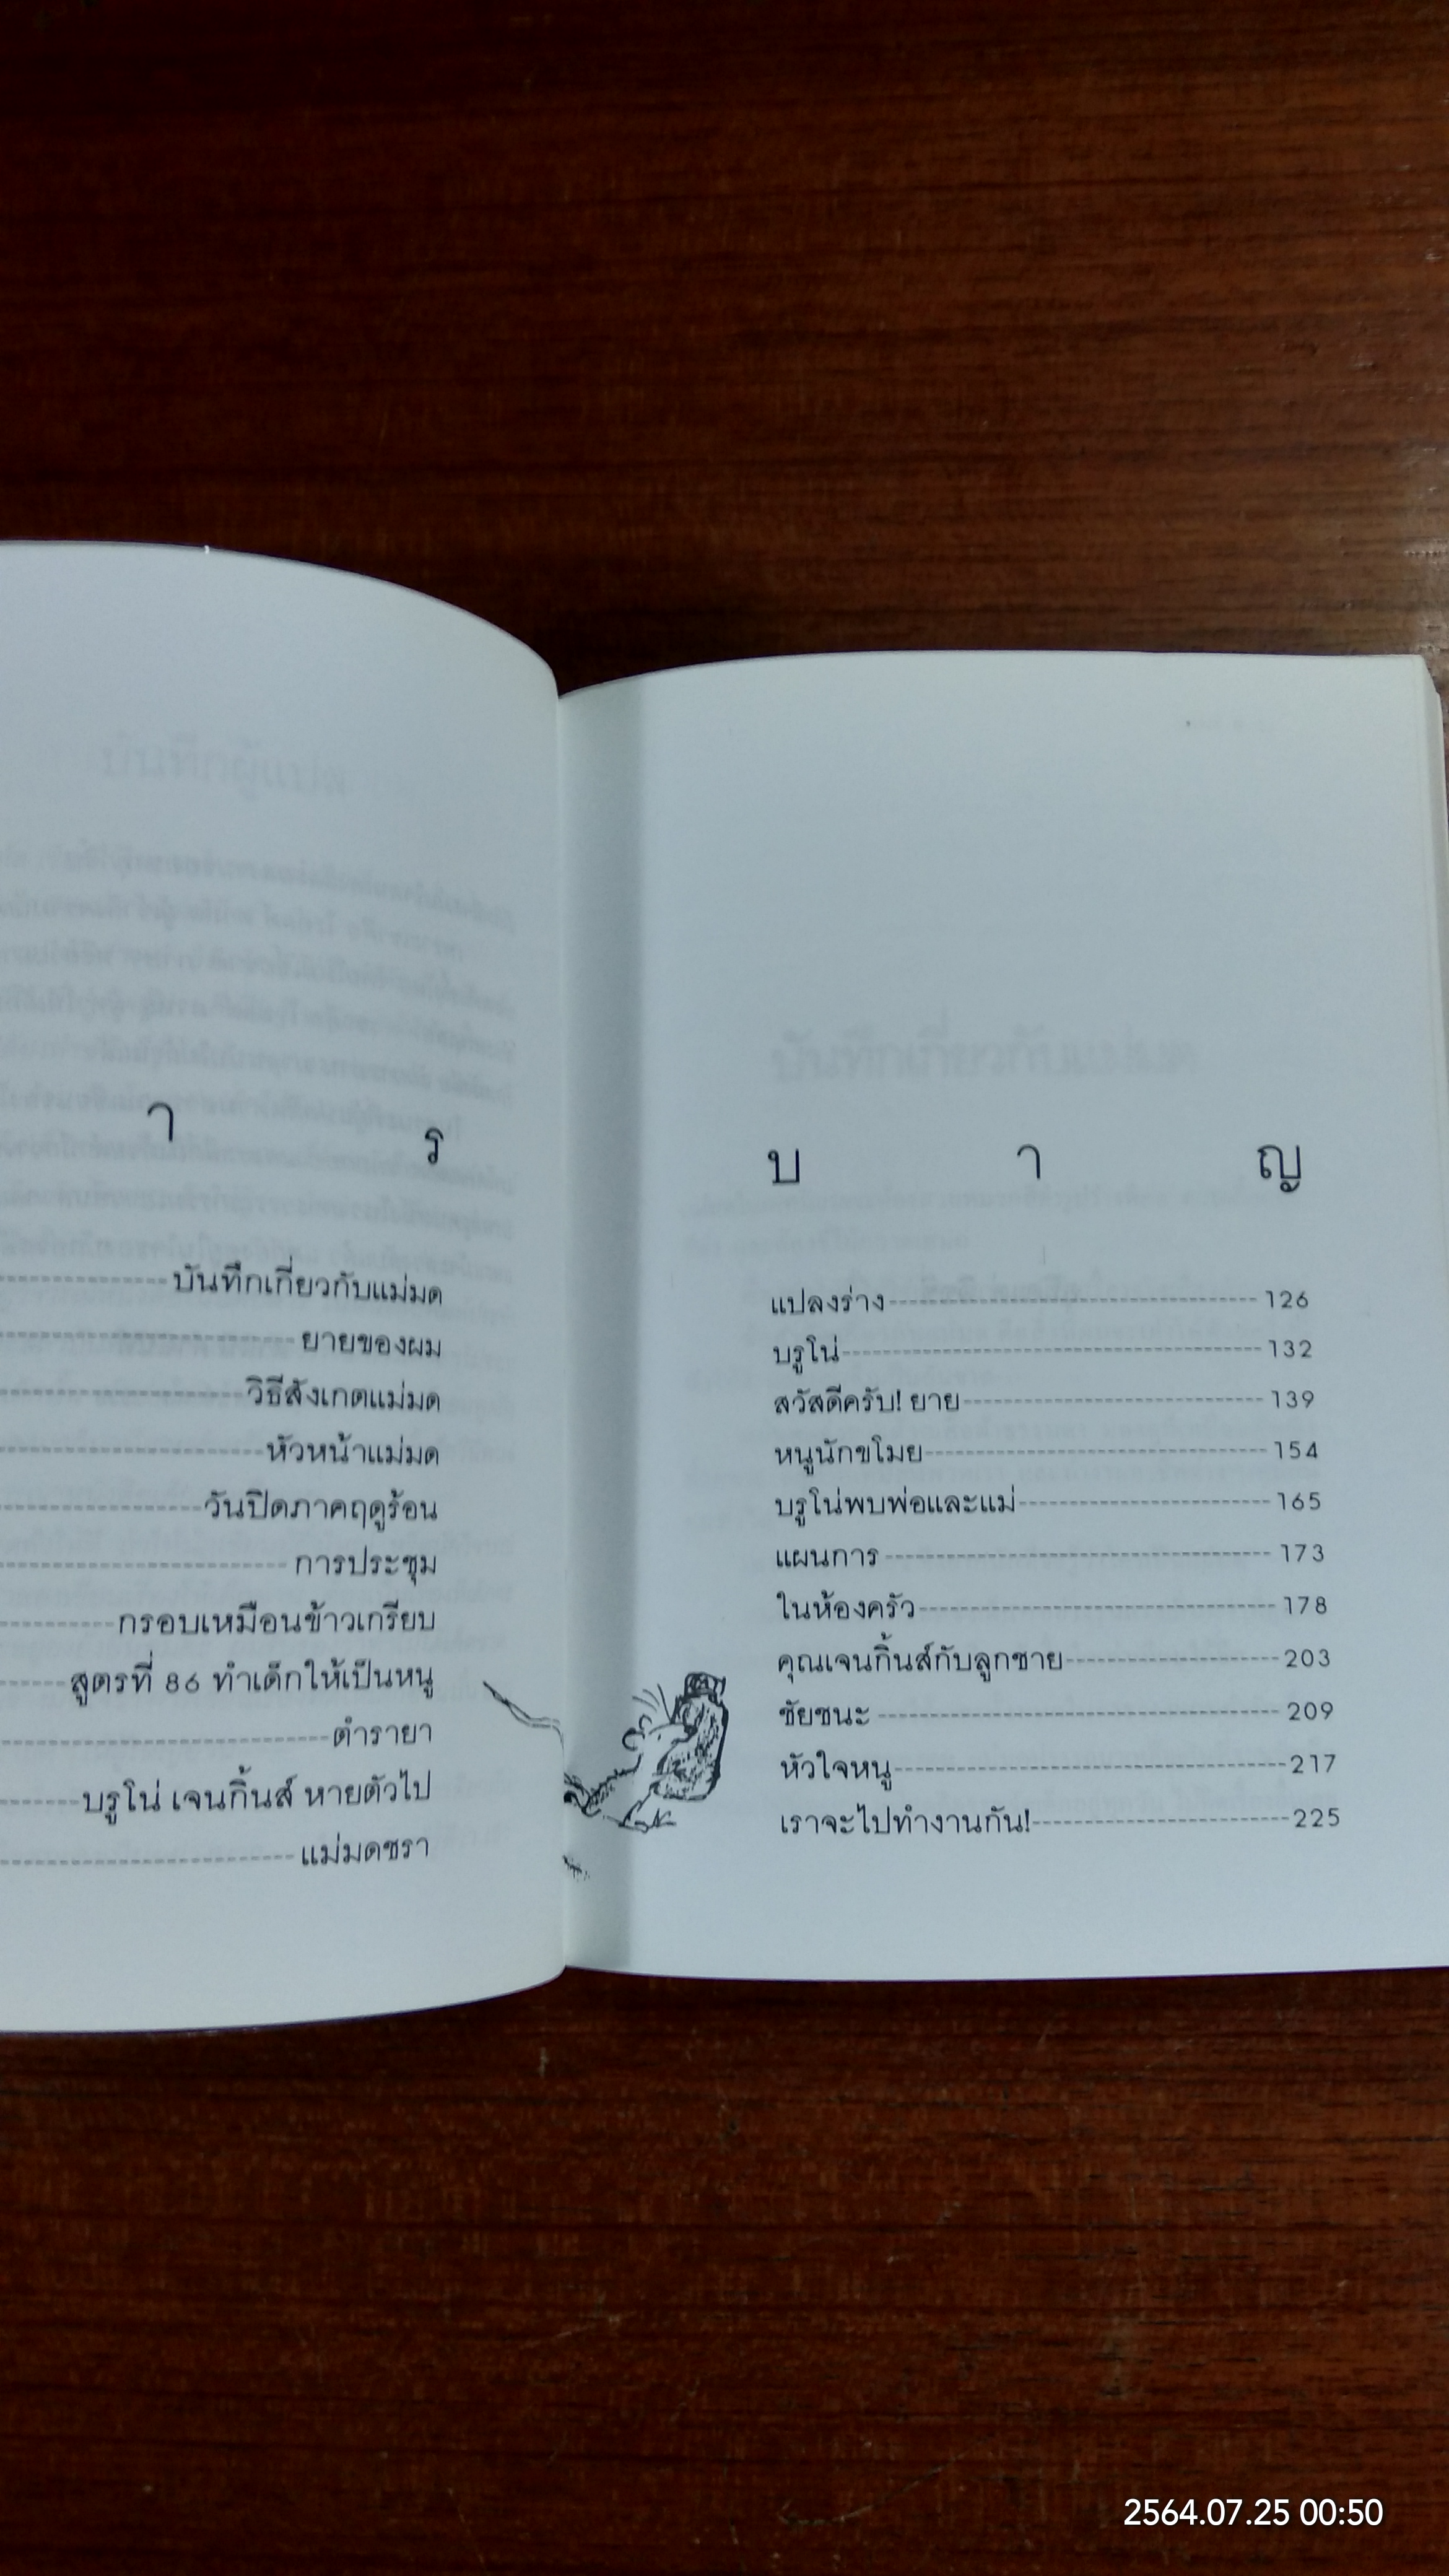 า ร
บันทึกเกี่ยวกับแม่มด
ยายของผม
วิธีสังเกตแม่มด
หัวหน้าแม่มด
วันปิดภาคฤดูร้อน
การประชุม
กรอบเหมือนข้าวเกรียบ
สูตรที่ 86 ทำเด็กให้เป็นหนู
ตำรายา
บรูโน่ เจนกิ้นส์ หายตัวไป
แม่มดชรา
บ า ญ
แปลงร่าง 126
บรูโน่ 132
สวัสดีครับ! ยาย 139
หนูนักขโมย 154
บรูโน่พบพ่อและแม่ 165
แผนการ 173
ในห้องครัว 178
คุณเจนกิ้นส์กับลูกชาย 203
ชัยชนะ 209
หัวใจหนู 217
เราจะไปทำงานกัน! 225
2564.07.25 00:50